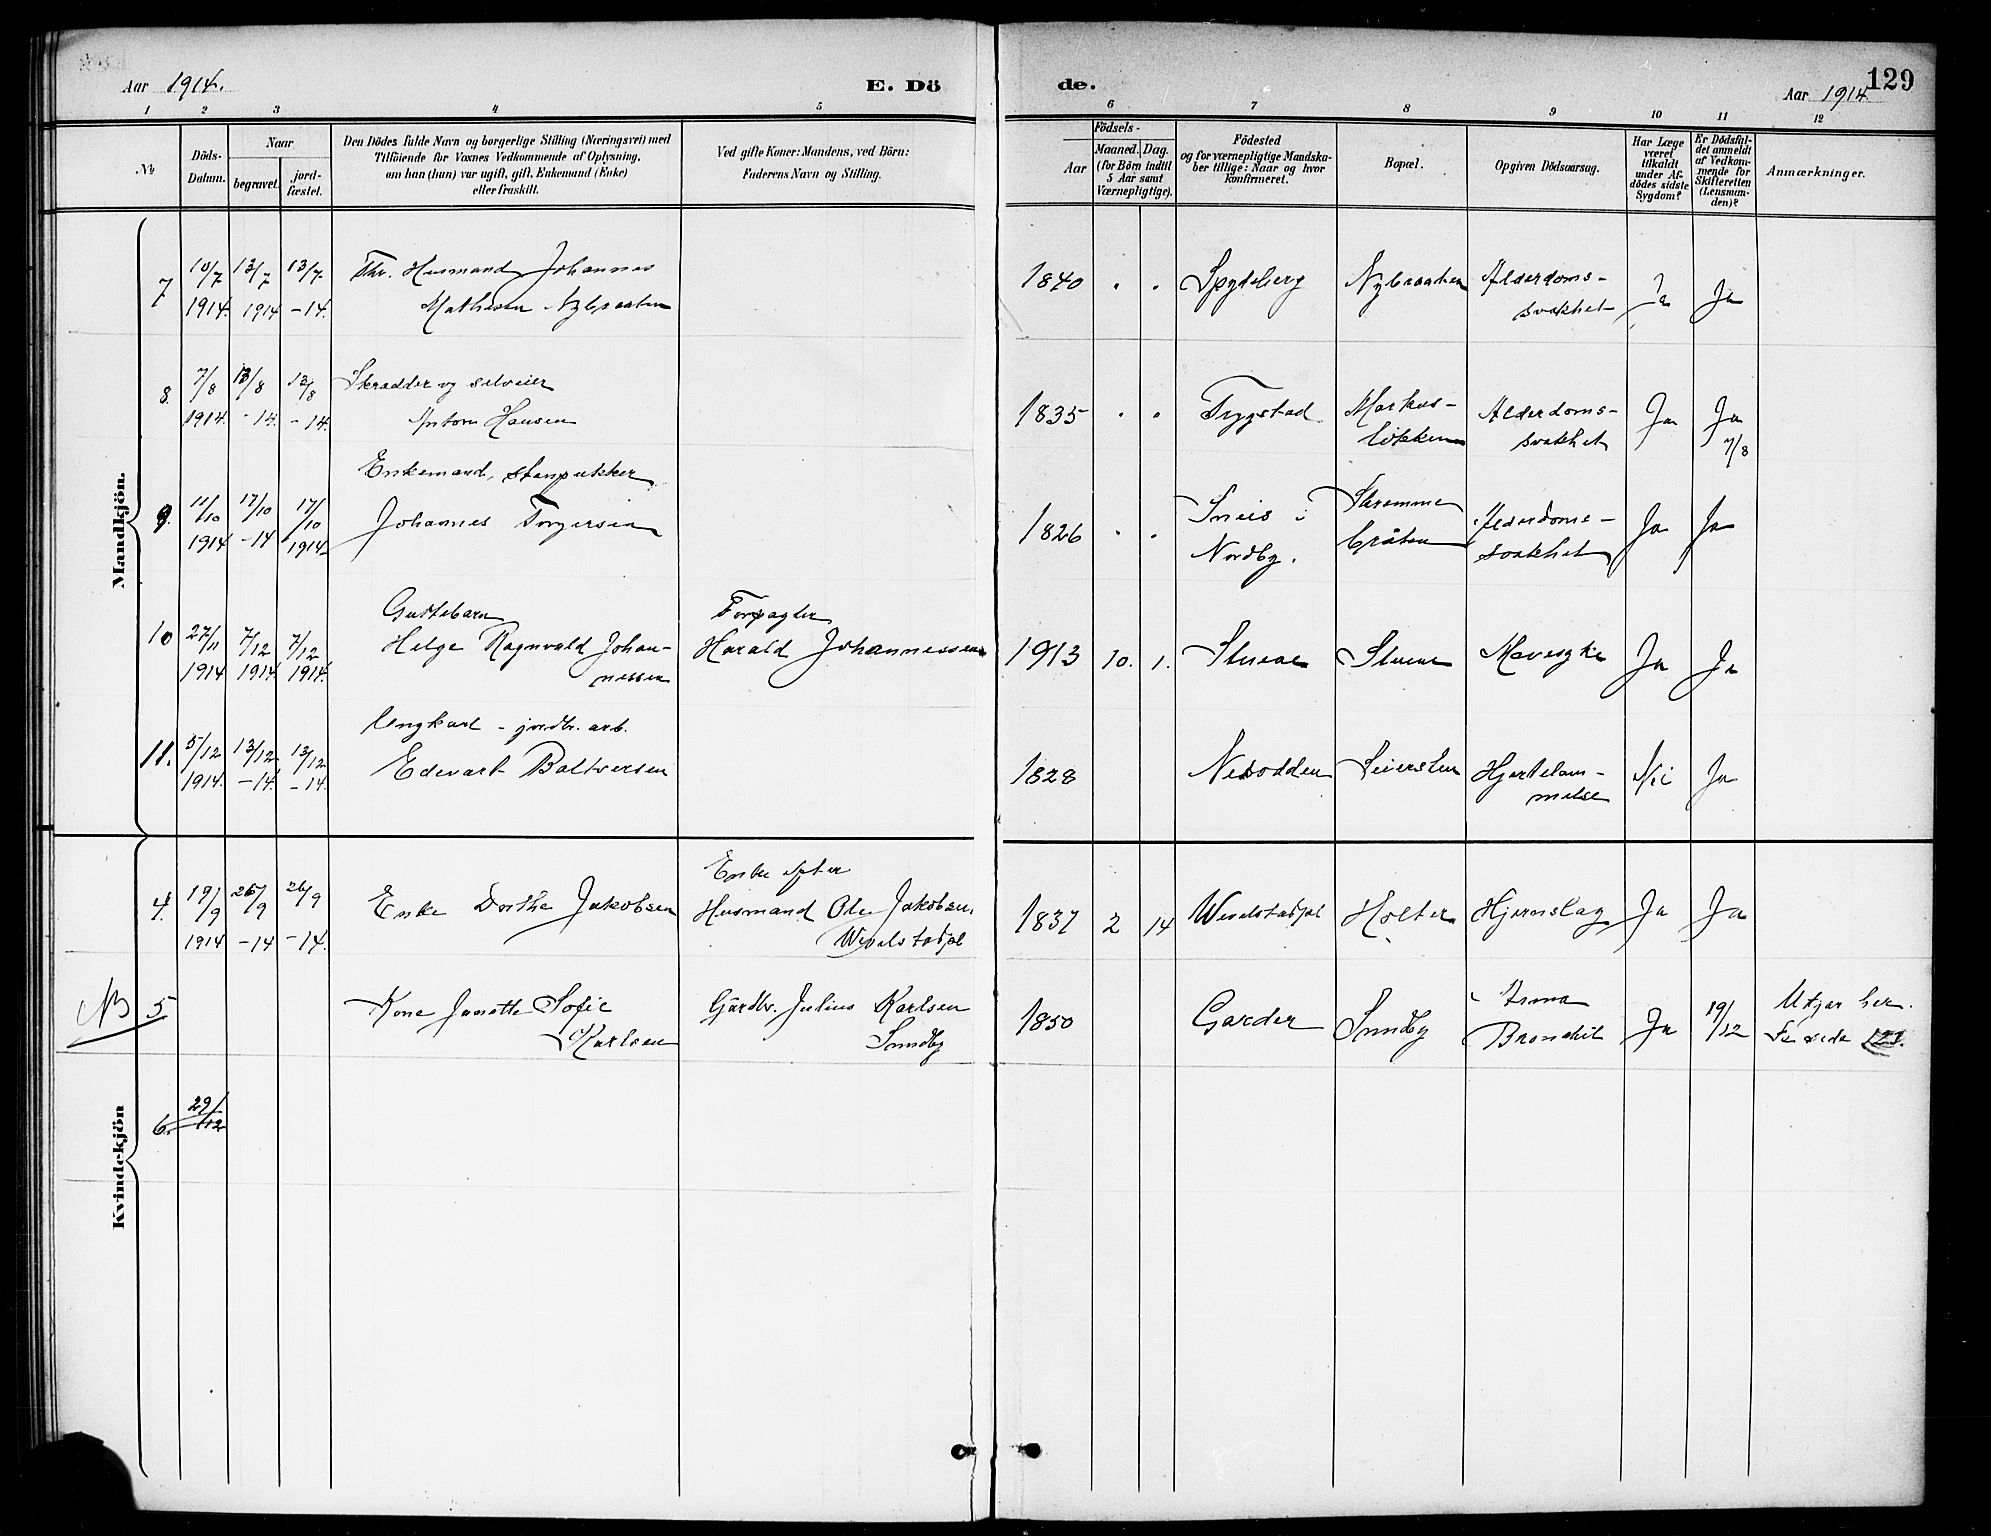 Aar 1914.
E. Dö
1 2 3 4 5
No
Döds-
Datum.
Naar
begravet.
jord-
fæstet.
Den Dödes fulde Navn og borgerlige Stilling (Næringsvei) med
Tilföiende for Voxnes Vedkommende af Oplysning,
om han (hun) var ugift, gift, Enkemand (Enke)
eller fraskilt.
Ved gifte Koner: Mandens, ved Börn:
Faderens Navn og Stilling.
Mandkjön.
7
10/7 13/7 13/7
1914. 1914 -14.
Fhr. Husmand Johannes
Mathisen Nybraaten
8.
7/8 13/8 13/8
1914. -14. -14.
Skrædder og selveier
Anton Hansen
9.
11/10 17/10 17/10
1914 -14 1914
Enkemand, stenpukker
Johannes Torgersen
10
27/11 7/12 7/12
1914 1914 1914.
Guttebarn
Helge Ragnvald Johan-
nessen
Forpagter
Harald Johannessen
11.
5/12 13/12 13/12
1914. -14. -14.
Ungkarl - jordbr. arb.
Edevart Baltersen
Kvindekjön
4.
19/9 26/9 26/9
1914 -14 -14.
Enke Dorthe Jakobsen
Enke efter
Husmand Ole Jakobsen,
Wevelstadpl
NB 5
Kone Janette Sofie
Karlsen
Gårdbr. Julius Karlsen
Sundby
6. 29/12
de.
129
Aar 1914
6 7 8 9 10 11 12
Födsels-
Aar
Maaned. Dag.
(for Börn indtil
5 Aar samt
Værnepligtige).
Födested
og for værnepligtige Mandska-
ber tillige: Naar og hvor
konfirmeret.
Bopæl.
Opgiven Dödsaarsag.
Har Læge
været
tilkaldt
under Af-
dödes sidste
Sygdom?
Er Dödsfal-
det anmeldt
af Vedkom-
mende for
Skifteretten
(Lensman-
den)?
Anmærkninger.
1840 " " Spydeberg Nybraaten Alderdoms-
svakhet Ja Ja
1835 " " Trygstad Markus-
løkken Alderdoms-
svakhet Ja Ja
7/8
1826 " " i
Nordby.
bråten Alderdoms-
svakhet Ja Ja
1913 10. 1. Stuene Stuene Mavesyke Ja Ja
1828 Nesodden Seiersten Hjertelam-
melse Nei Ja
1837 2 14 Wevelstadpl Holter Hjerneslag Ja Ja
1850 Garder Sundby Asma
Bronchit Ja 19/12 Utgar her.
Se side 123.